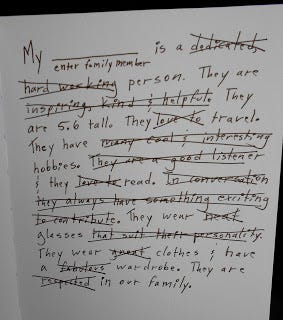 My __________ is a dedicated,
enter family member
hard working person. They are
inspiring, kind & helpful. They
are 5.6 tall. They love to travel.
They have many cool & interesting
hobbies. They are a good listener
& they love to read. In conversation
they always have something exciting
to contribute. They wear neat
glasses that suit their personality.
They wear great clothes & have
a fabulous wardrobe. They are
respected in our family.